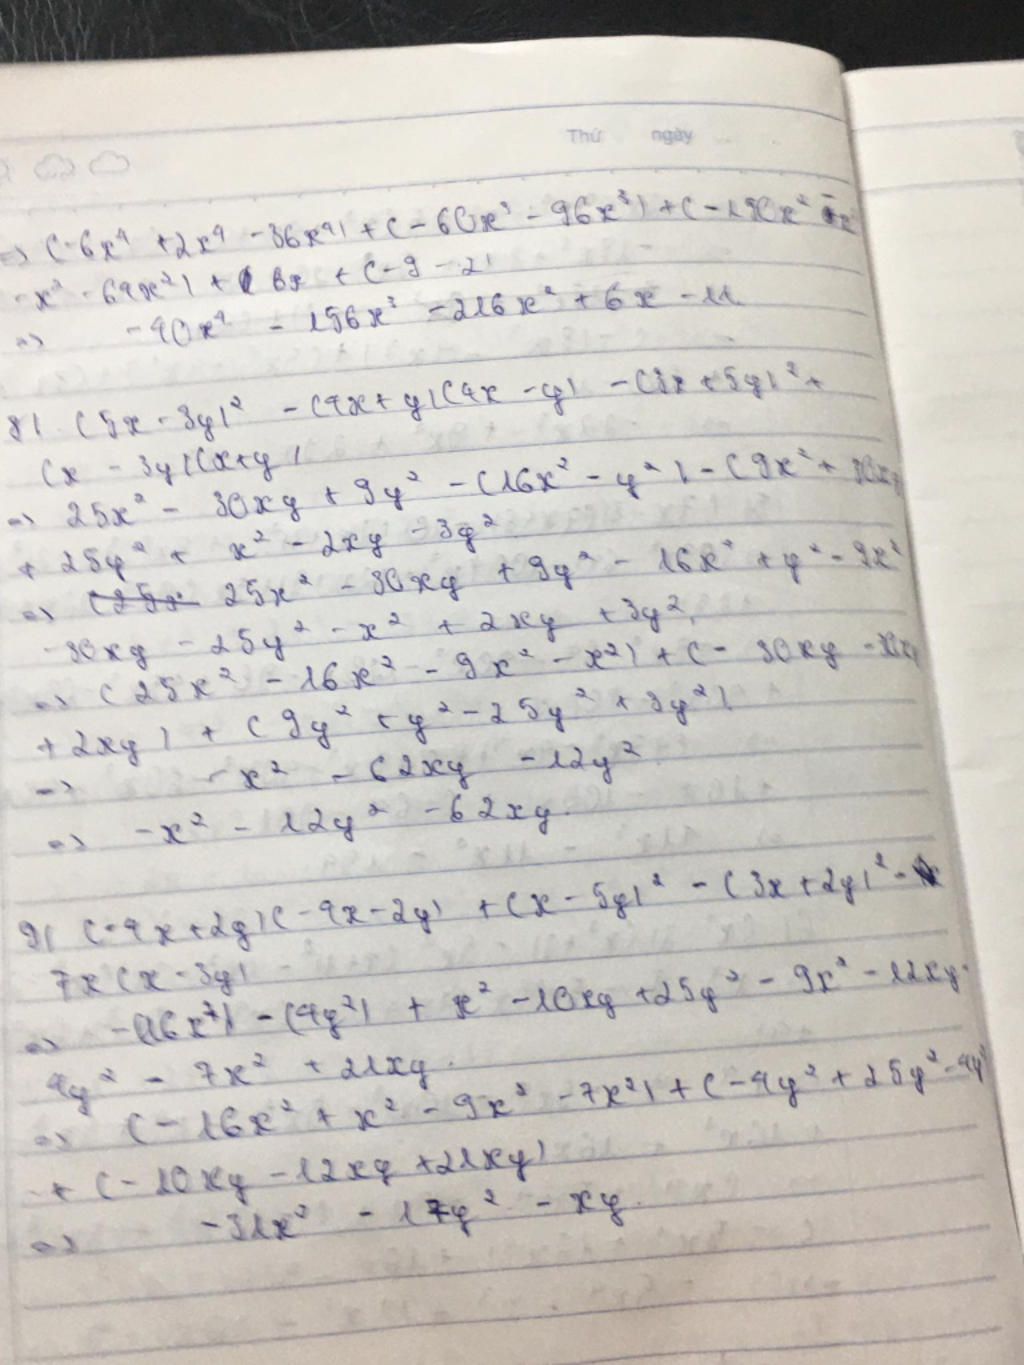 Thứ ngày
=> (-6x⁴ + 2x⁴ - 36x⁴) + (-60x³ - 96x³) + (-150x²
-x² - 64x²) + 6x + (-9 - 2)
=> -40x⁴ - 156x³ - 216x² + 6x - 11.
8) (5x - 3y)² - (4x + y)(4x - y) - (3x + 5y)² +
(x - 3y)(x+y)
=> 25x² - 30xy + 9y² - (16x² - y²) - (9x² + 30xy
+ 25y² + x² - 2xy - 3y²
=> 25x² - 30xy + 9y² - 16x² + y² - 9x²
-30xy - 25y² - x² + 2xy + 3y².
=> (25x² - 16x² - 9x² - x²) + (- 30xy - 30xy
+ 2xy) + (9y² + y² - 25y² + 3y²)
=> -x² - 62xy - 12y²
=> -x² - 12y² - 62xy.
9) (-4x + 2y)(-4x - 2y) + (x - 5y)² - (3x + 2y)² -
7x(x - 3y)
=> -(16x²) - (4y²) + x² - 10xy + 25y² - 9x² - 12xy -
4y² - 7x² + 21xy.
=> (- 16x² + x² - 9x² - 7x²) + (-4y² + 25y² - 4y²
+ (- 10xy - 12xy + 21xy)
=> -31x² - 17y² - xy.